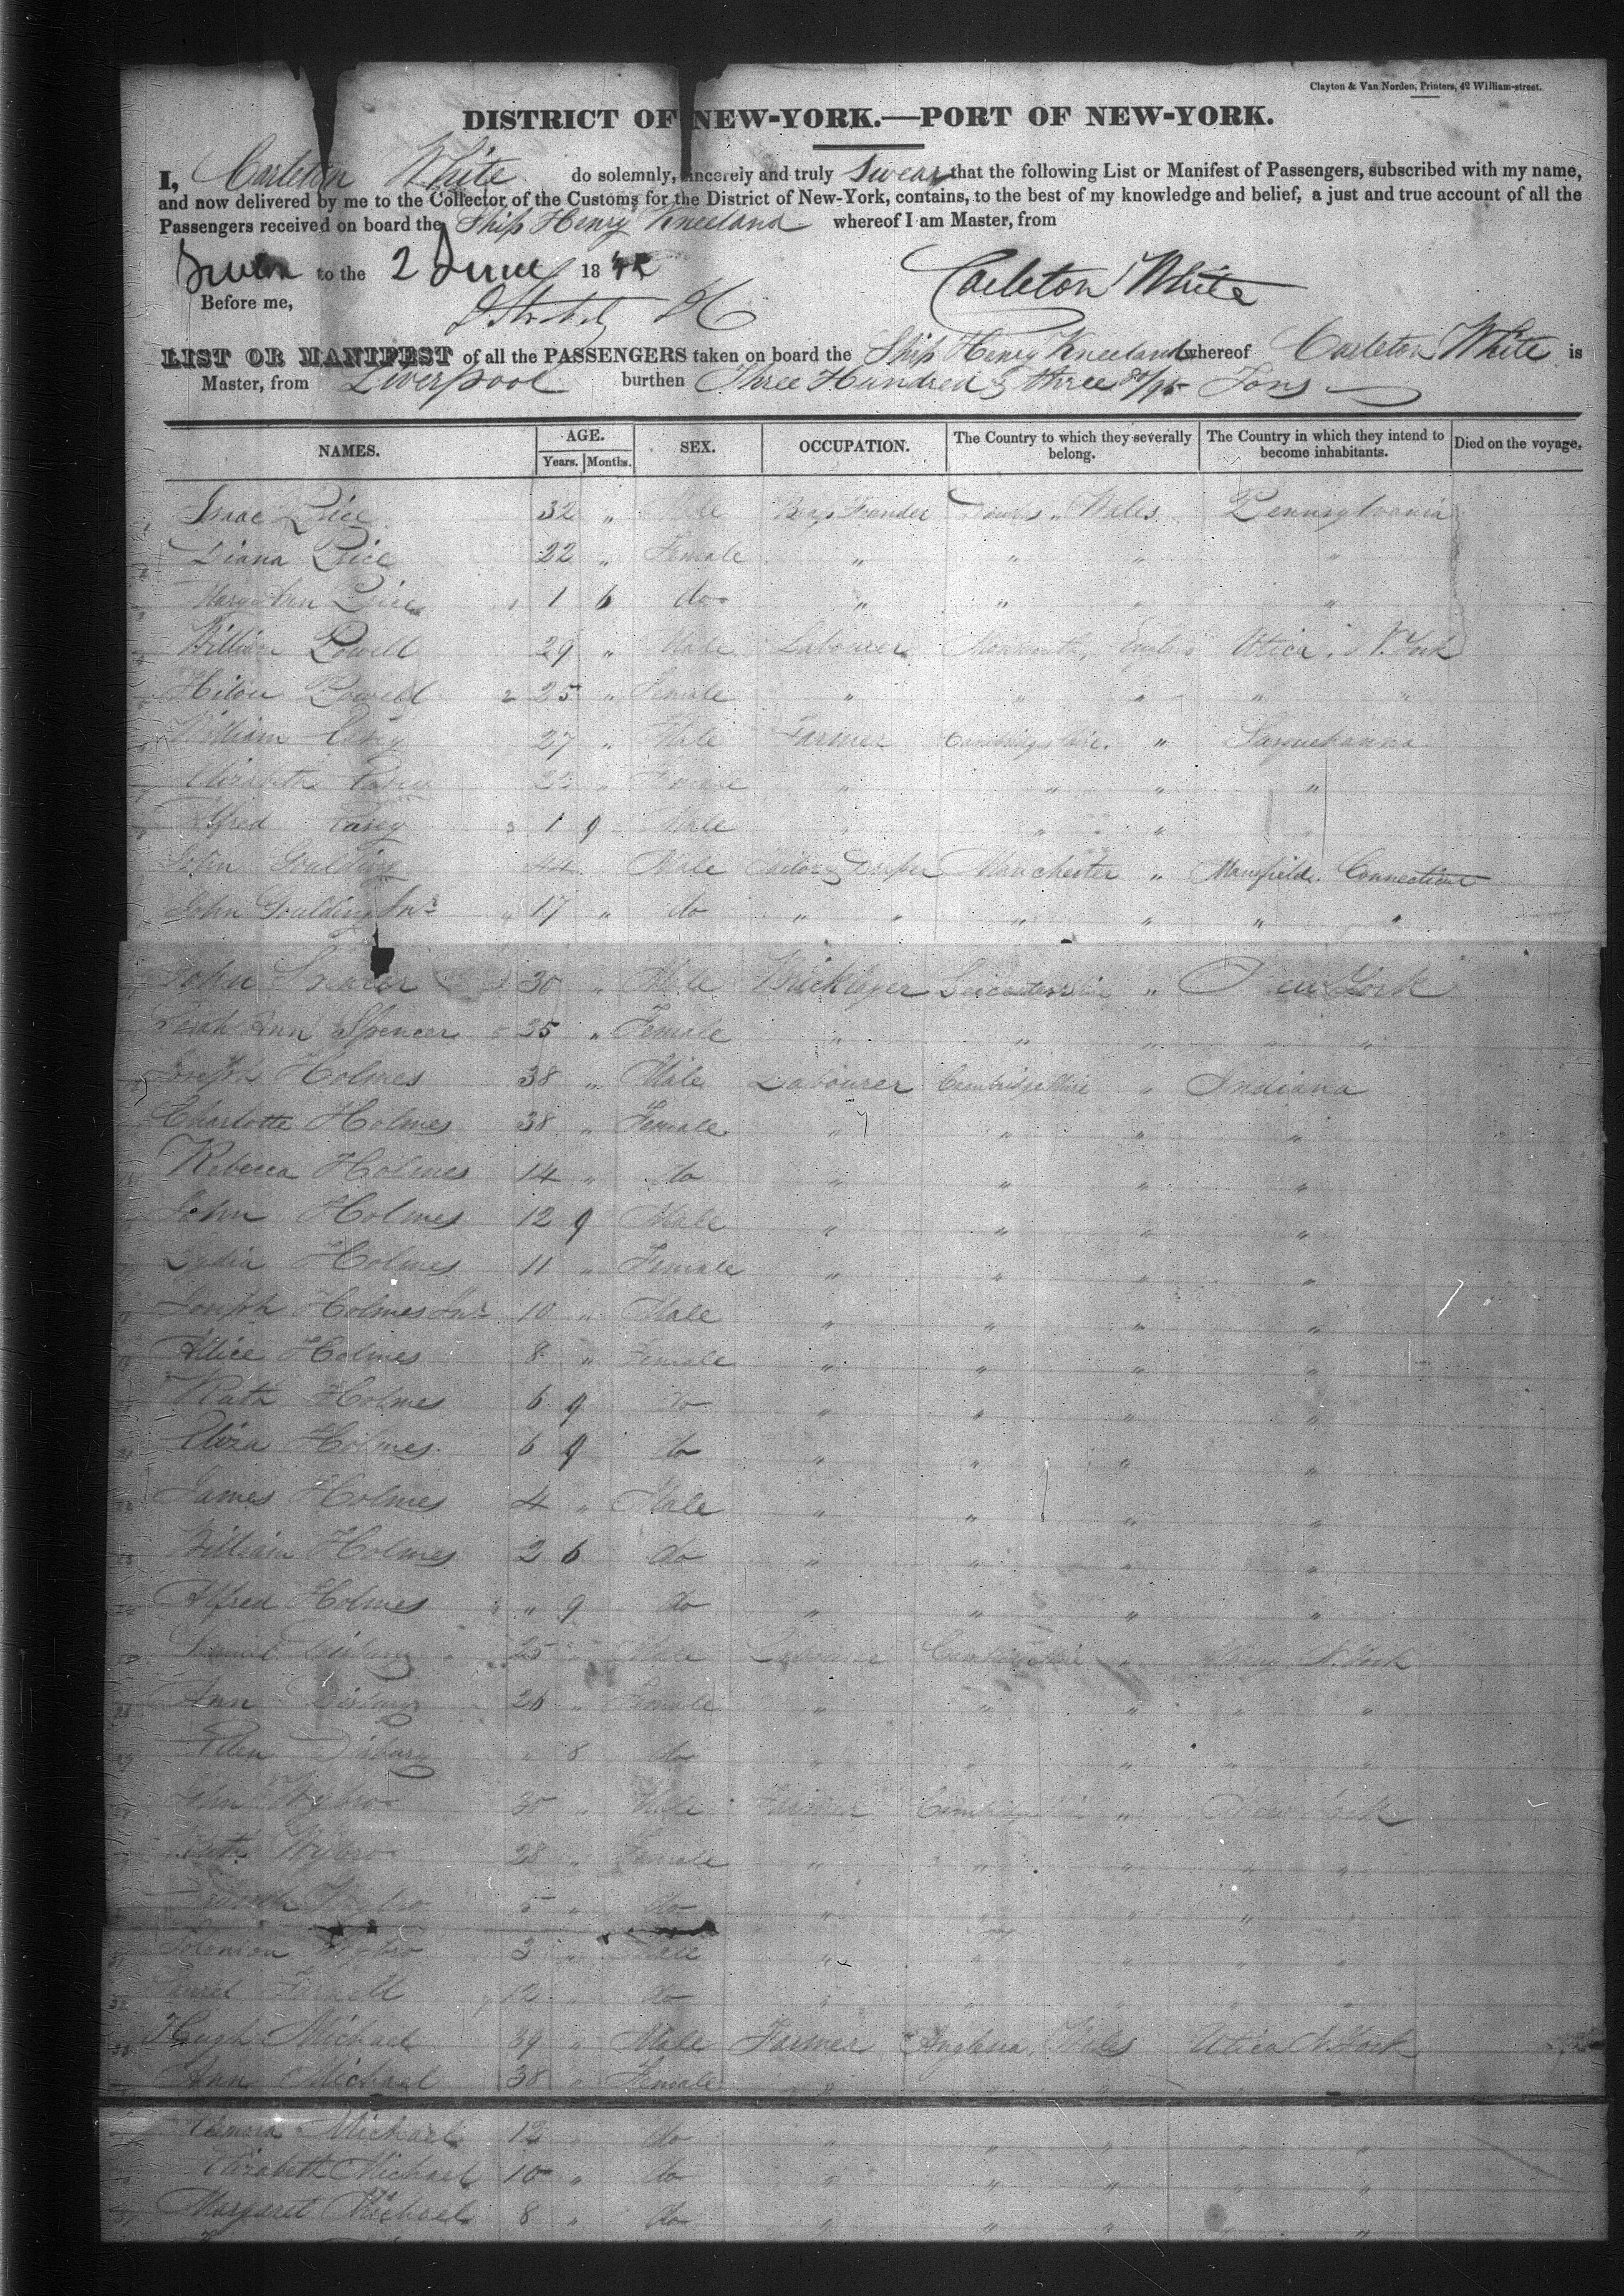 Clayton & Van Norden, Printers, 42 William-street.
DISTRICT OF NEW-YORK.—PORT OF NEW-YORK.
I, Carleton White do solemnly, sincerely and truly Swear that the following List or Manifest of Passengers, subscribed with my name,
and now delivered by me to the Collector of the Customs for the District of New-York, contains, to the best of my knowledge and belief, a just and true account of all the
Passengers received on board the Ship Henry Kneeland whereof I am Master, from
Sworn to the 2 June 18
Carleton White
Before me,
LIST OR MANIFEST of all the PASSENGERS taken on board the Ship Henry Kneeland whereof Carleton White is
Master, from Liverpool burthen Three Hundred & three Tons
NAMES. AGE. SEX. OCCUPATION. The Country to which they severally belong. The Country in which they intend to become inhabitants. Died on the voyage.
Years. Months.
Isaac Price 32 " Male Founder Wales Pennsylvania
Diana Price 22 " Female " " " "
Mary Ann Price 1 1 6 do " " " "
William Powell 29 " Male Labourer Utica, N. York
Powell 2 25 " Female " " " " "
William 27 " Male Farmer " Susuehanna
Elizabeth 22 " Female " " " "
Alfred 3 1 9 Male " " " "
John Goulding 44 Male Draper Manchester " Mansfield Connecticut
John Goulding Jnr 4 17 " do " " " " " "
John Spencer 30 " Male Bricklayer Leicestershire " New York
Sarah Ann Spencer 25 " Female " " " " "
Joseph Holmes 38 " Male Labourer Cambridgeshire " Indiana
Charlotte Holmes 38 " Female " " " "
Rebecca Holmes 14 " do " " " "
John Holmes 12 9 Male " " " "
Lydia Holmes 11 " Female " " " "
Joseph Holmes Jnr 10 " Male " " " "
Allice Holmes 8 " Female " " " "
Ruth Holmes 6 9 do " " " "
Eliza Holmes 6 9 do " " " "
James Holmes 4 " Male " " " "
William Holmes 2 6 do " " " "
Alfred Holmes " 9 do " " " "
25 " Male Labourer Cambridgeshire " N. York
Ann Disbury 26 " Female " " " " "
Ellen Disbury " 8 do " " " " "
John Wybro 30 " Male Farmer Cambridgeshire " New York
Wybro 28 " Female " " " " "
Wybro 5 " do " " " " "
Solomon Wybro 3 " Male " " " " "
Farnell 12 " do " " " " "
Hugh Michael 39 " Male Farmer Wales Utica N. York
Ann Michael 38 " Female " "
Michael 12 " do " " " " "
Elizabeth Michael 10 " do " " " " "
Margaret Michael 8 " do " " " " "